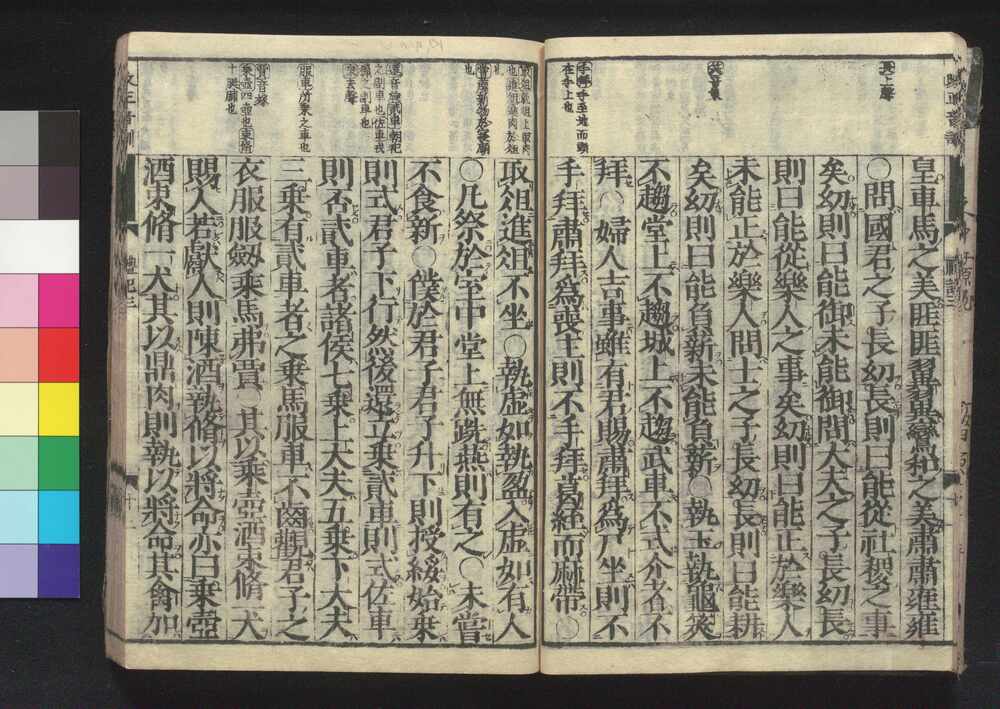 長上聲
筴音策
手拜手至地而頭在手上也
皇車馬之美匪匪翼翼鸞和之美肅肅雍雍
○問國君之子長幼長則曰能從社稷之事
矣幼則曰能御未能御問大夫之子長幼長
則曰能從樂人之事矣幼則曰能正於樂人
未能正於樂人問士之子長幼長則曰能耕
矣幼則曰能負薪未能負薪○執玉執龜筴
不趨堂上不趨城上不趨武車不式介者不
拜○婦人吉事雖有君賜肅拜爲尸坐則不
手拜肅拜爲喪主則不手拜葛絰而麻帶○
服車所乘之車也
賈音嫁
取俎進俎不坐○執虛如執盈入虛如有人
○凡祭於室中堂上無跣燕則有之○未嘗
不食新○僕於君子君子升下則授綏始乘
則式君子下行然後還立乘貳車則式佐車
則否貳車者諸侯七乘上大夫五乘下大夫
三乘有貳車者之乘馬服車不齒觀君子之
衣服服劔乘馬弗賈○其以乘壺酒束脩一犬
賜人若獻人則陳酒執脩以將命亦曰乘壺
酒束脩一犬其以鼎肉則執以將命其禽加
禮記三
十